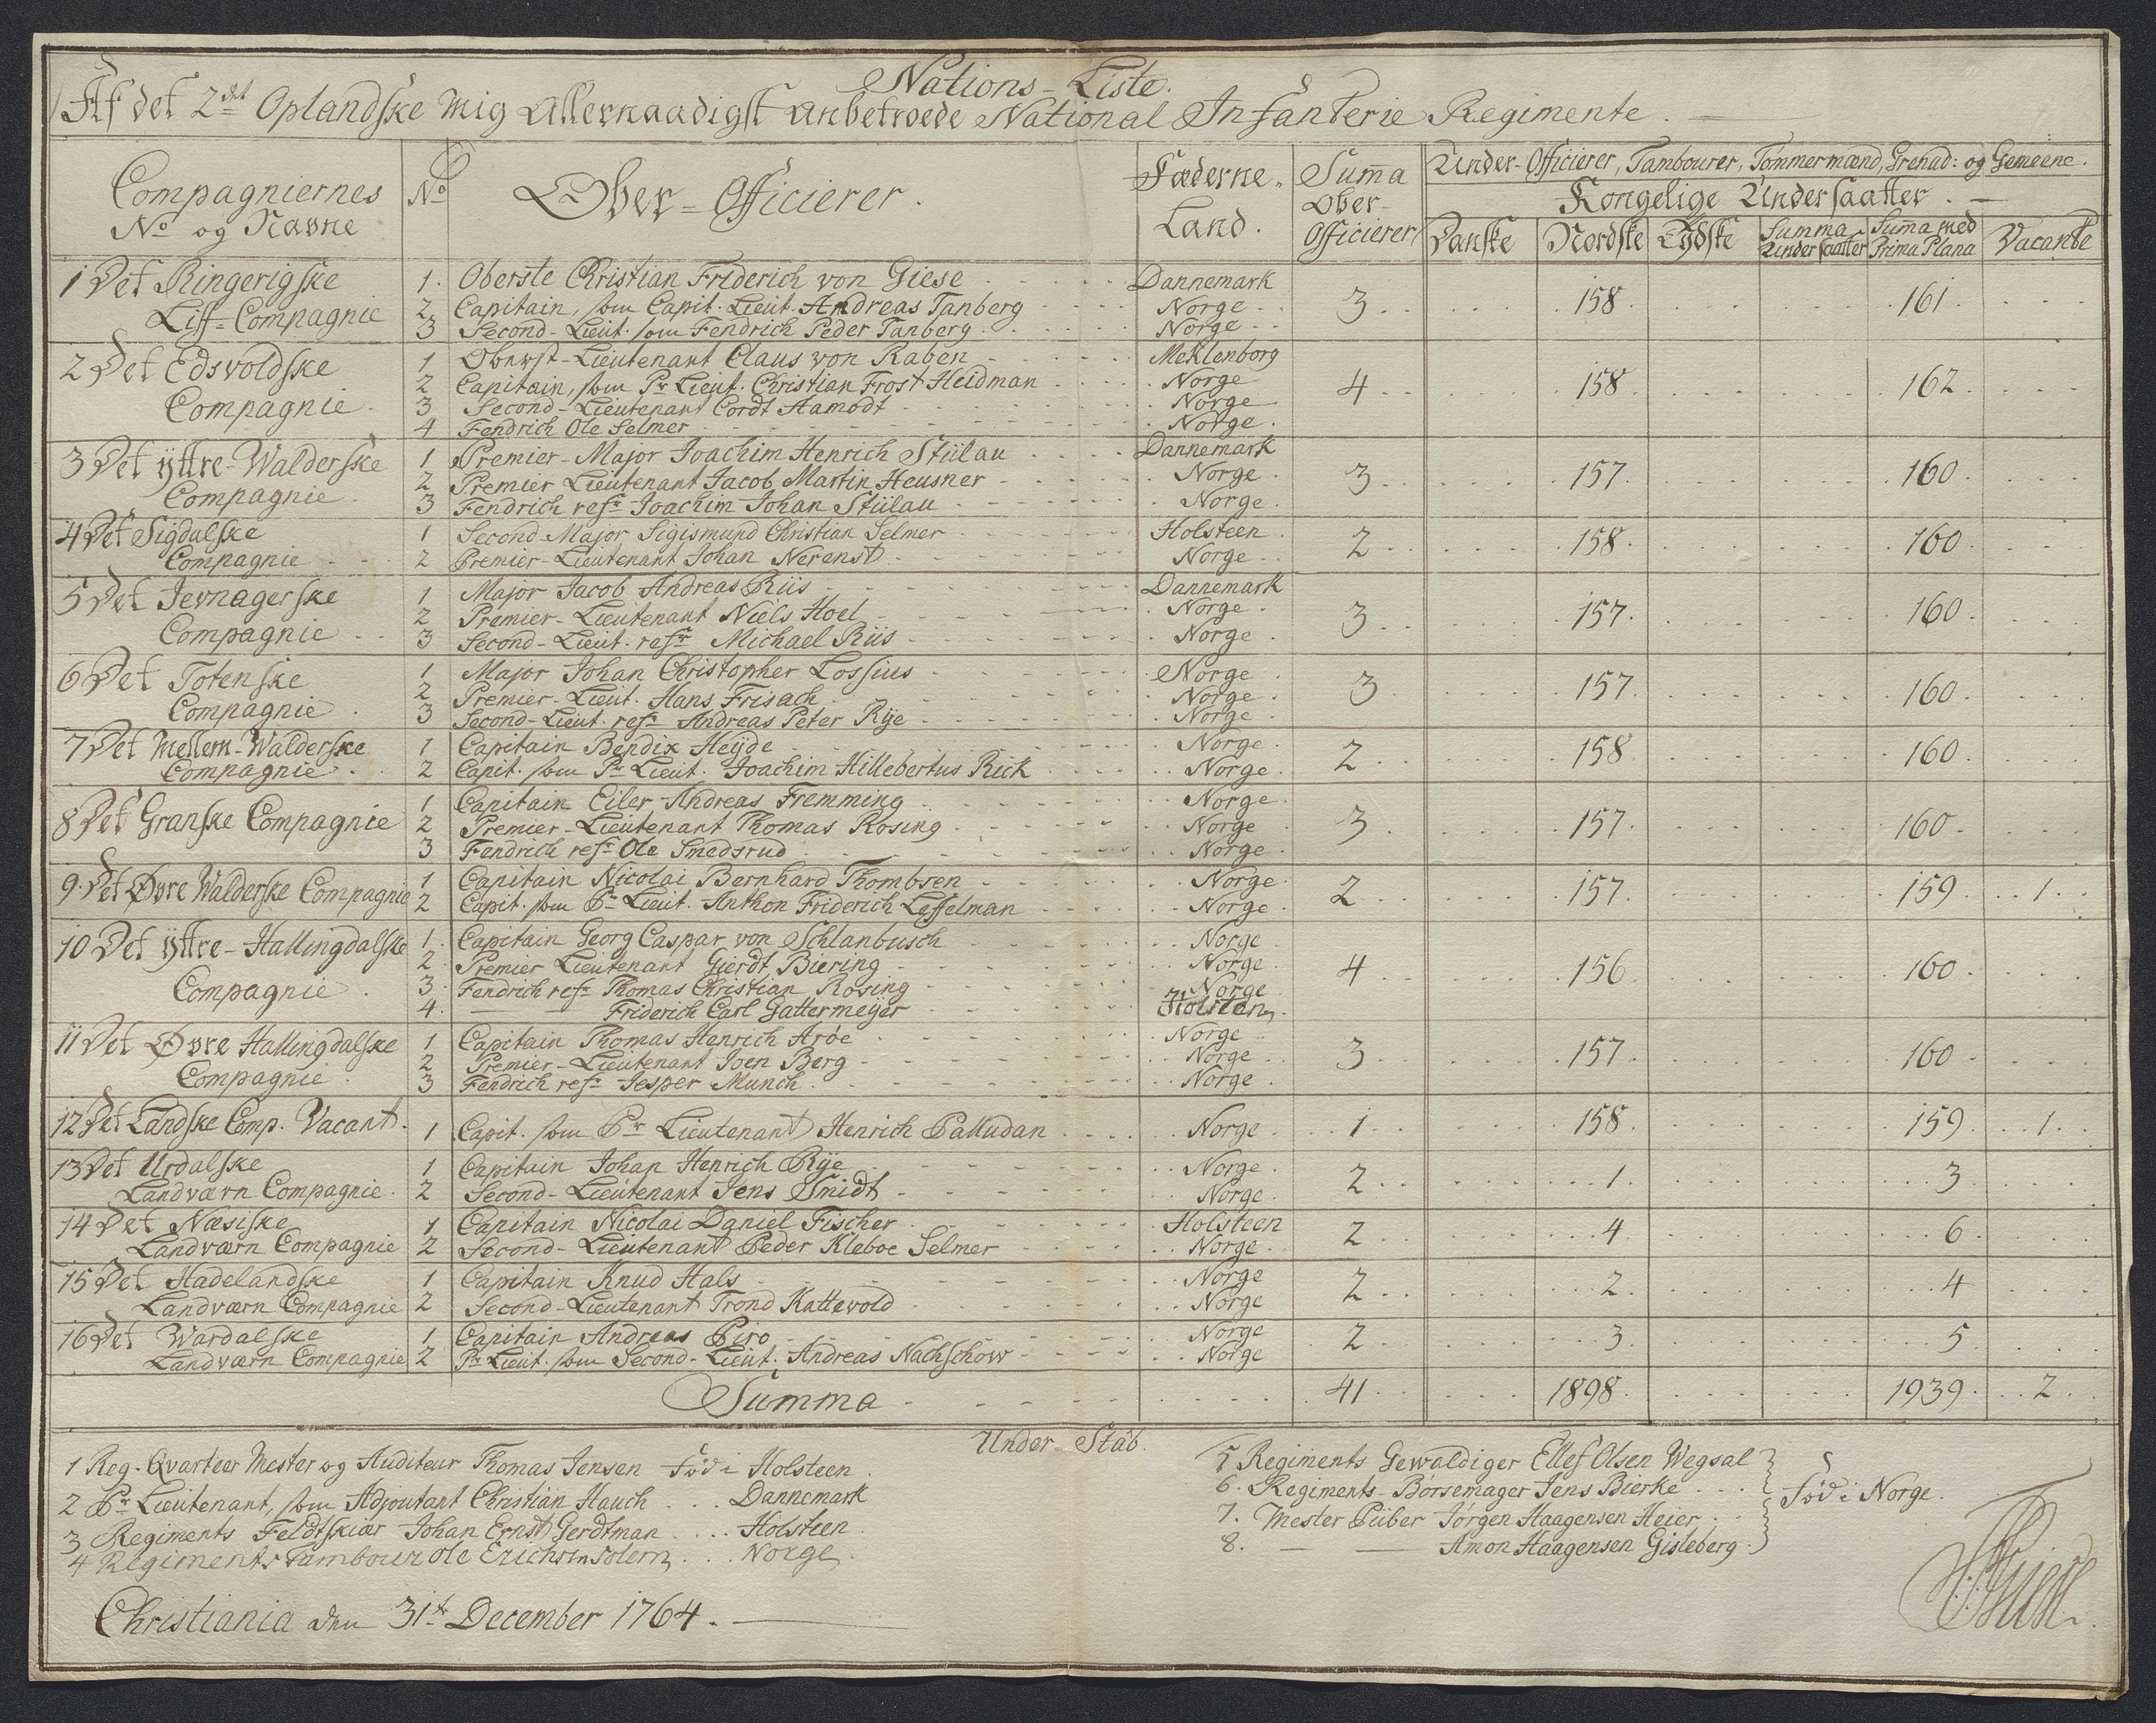 Nations-Liste.
Af det 2det Oplandske Mig Allernaadigst anbetroede National Infanterie Regimente.
Compagniernes No og Navne | No | Ober-Officierer. | Fæderne-Land. | Summa Ober-Officierer | Under-Officierer, Tambourer, Tømmermænd, Grenad: og Gemeene.
Kongelige Undersaatter.
Danske | Nordske | Tydske | Summa Undersaatter | Summa med Prima Plana | Vacante
1 Det Ringerigske Liff-Compagnie | 3 | 158 | 161
1. Oberste Christian Friderich von Giese Dannemark
2. Capitain, som Capit. Lieut. Andreas Tanberg Norge
3 Second-Lieut. som Fendrich Peder Tanberg Norge
2 Det Edsvoldske Compagnie | 4 | 158 | 162
1 Oberst-Lieutenant Claus von Raben Meklenborg
2 Capitain, som Pr Lieut. Christian Frost Heidman Norge
3 Second-Lieutenant Cordt Aamodt Norge
4 Fendrich Ole Selmer Norge
3 Det ÿttre-Walderske Compagnie | 3 | 157 | 160
1 Premier-Major Joachim Henrich Stülau Dannemark
2 Premier Lieutenant Jacob Martin Heusner Norge
3 Fendrich resr Joachim Johan Stülau Norge
4 Det Sigdalske Compagnie | 2 | 158 | 160
1 Second-Major Sigismund Christian Selmer Holsteen
2 Premier-Lieutenant Johan Nerenst Norge
5 Det Jevnagerske Compagnie | 3 | 157 | 160
1 Major Jacob Andreas Riis Dannemark
2 Premier-Lieutenant Niels Hoel Norge
3 Second-Lieut. resr Michael Riis Norge
6 Det Totenske Compagnie | 3 | 157 | 160
1 Major Johan Christopher Lossius Norge
2 Premier-Lieut. Hans Frisach Norge
3 Second-Lieut. resr Andreas Peter Rÿe Norge
7 Det Mellem-Walderske Compagnie | 2 | 158 | 160
1 Capitain Bendix Heÿde Norge
2 Capit. som Pr Lieut. Joachim Hillebertus Rick Norge
8 Det Granske Compagnie | 3 | 157 | 160
1 Capitain Eiler Andreas Fremming Norge
2 Premier-Lieutenant Thomas Rosing Norge
3 Fendrich resr Ole Smedsrud Norge
9. Det Øvre Walderske Compagnie | 2 | 157 | 159 | 1
1 Capitain Nicolai Bernhard Thombsen Norge
2 Capit. som Pr Lieut. Anthon Friderich Leffelman Norge
10 Det ÿttre-Hallingdalske Compagnie | 4 | 156 | 160
1. Capitain Georg Caspar von Schlanbusch Norge
2. Premier Lieutenant Gierdt Biering Norge
3. Fendrich resr Thomas Christian Rosing Norge
4. Friderich Carl Gattermeÿer Holsteen
11 Det Øvre Hallingdalske Compagnie | 3 | 157 | 160
1 Capitain Thomas Henrich Arøe Norge
2 Premier-Lieutenant Joen Berg Norge
3 Fendrich resr Jesper Munch Norge
12 Det Landske Comp. Vacant. | 1 | 158 | 159 | 1
1 Capit. som Pr Lieutenant Henrich Palludan Norge
13 Det Urdalske Landværn Compagnie. | 2 | 1 | 3
1 Capitain Johan Henrich Rÿe Norge
2 Second-Lieutenant Jens Smidt Norge
14 Det Næsiske Landværn Compagnie | 2 | 4 | 6
1 Capitain Nicolai Daniel Fischer Holsteen
2 Second-Lieutenant Peder Kleboe Selmer Norge
15 Det Hadelandske Landværn Compagnie | 2 | 2 | 4
1 Capitain Knud Hals Norge
2 Second-Lieutenant Trond Kattevold Norge
16 Det Wardalske Landværn Compagnie | 2 | 3 | 5
1 Capitain Andreas Piro Norge
2 Pr Lieut. som Second-Lieut. Andreas Nachschow Norge
Summa 41 1898 1939 2
Under-Stab.
1 Reg. Qvarteer Mester og Auditeur Thomas Jensen Fød i Holsteen
2 Pr Lieutenant, som Adjoutant Christian Hauch Dannemark
3 Regiments Feldtskiær Johan Ernst Gerdtman Holsteen
4 Regiments Tambour Ole Erichsen Solem Norge
5 Regiments Gewaldiger Ellef Olsen Wegsal
6. Regiments-Børsemager Jens Bierke
7. Mester Piiber Jørgen Haagensen Heier
8. — — Amon Haagensen Gisleberg
Fød i Norge.
Christiania den 31t December 1764.